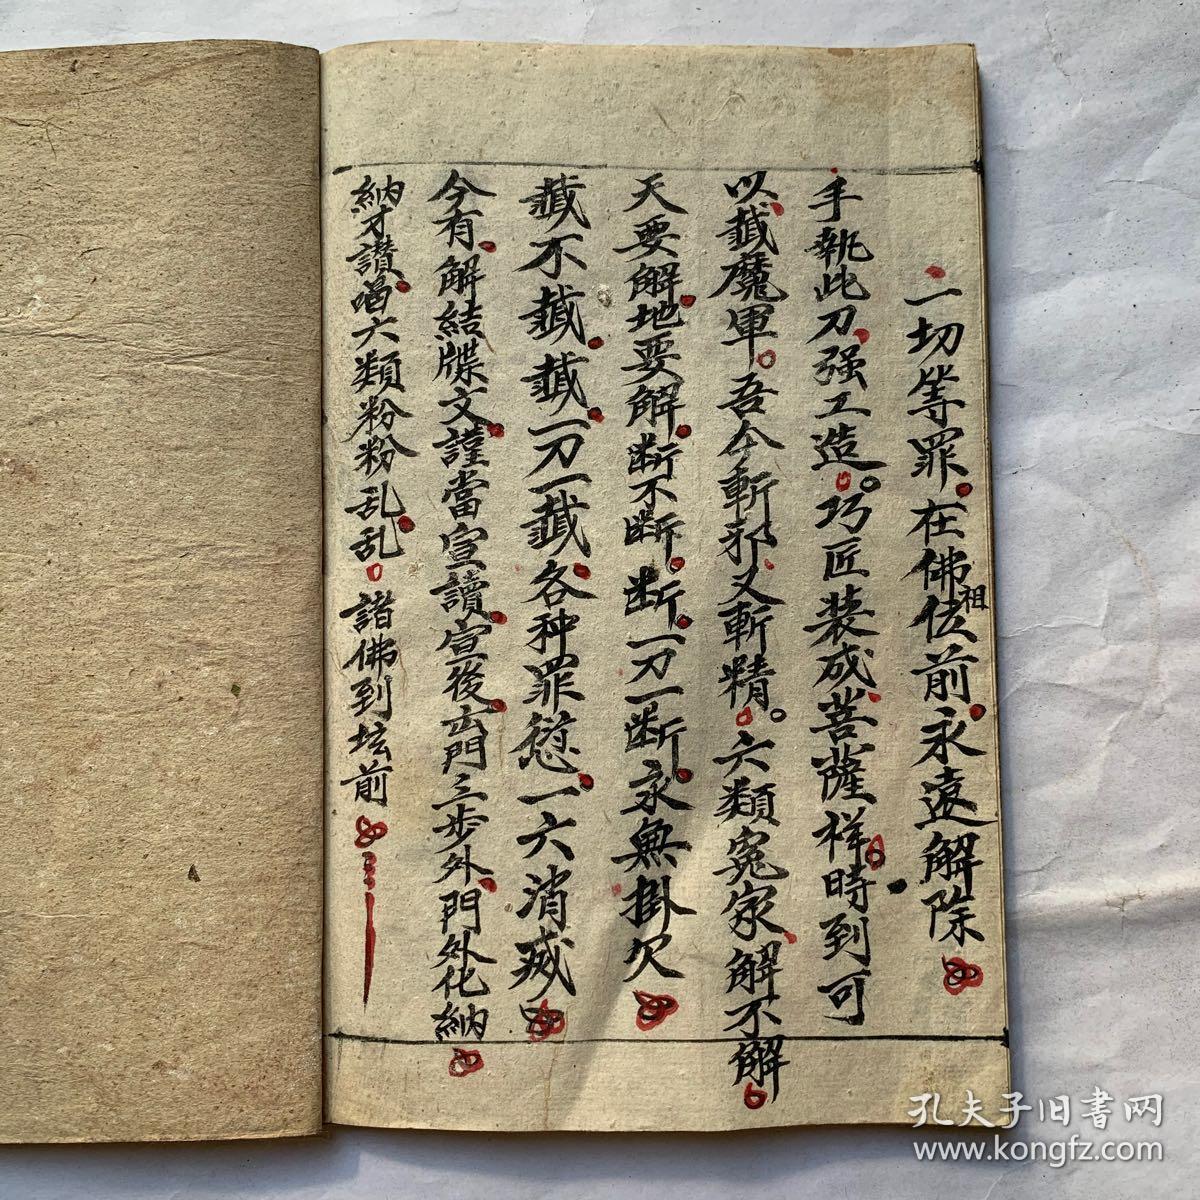 一切等罪在佛祖伩前永遠解除
手執此刀强工造巧匠装成菩薩样時到可
以韯魔軍吾今斬邪又斬精六類冤家解不解
天要解地要解断不断断一刀一断永無掛欠
韯不韯韯一刀一韯各种罪愆一六消滅
今有解結牒文謹當宣讀宣後出門三步外門外化納
納才讃唱六類粉粉乱乱諸佛到坛前
孔夫子旧書网
www.kongfz.com